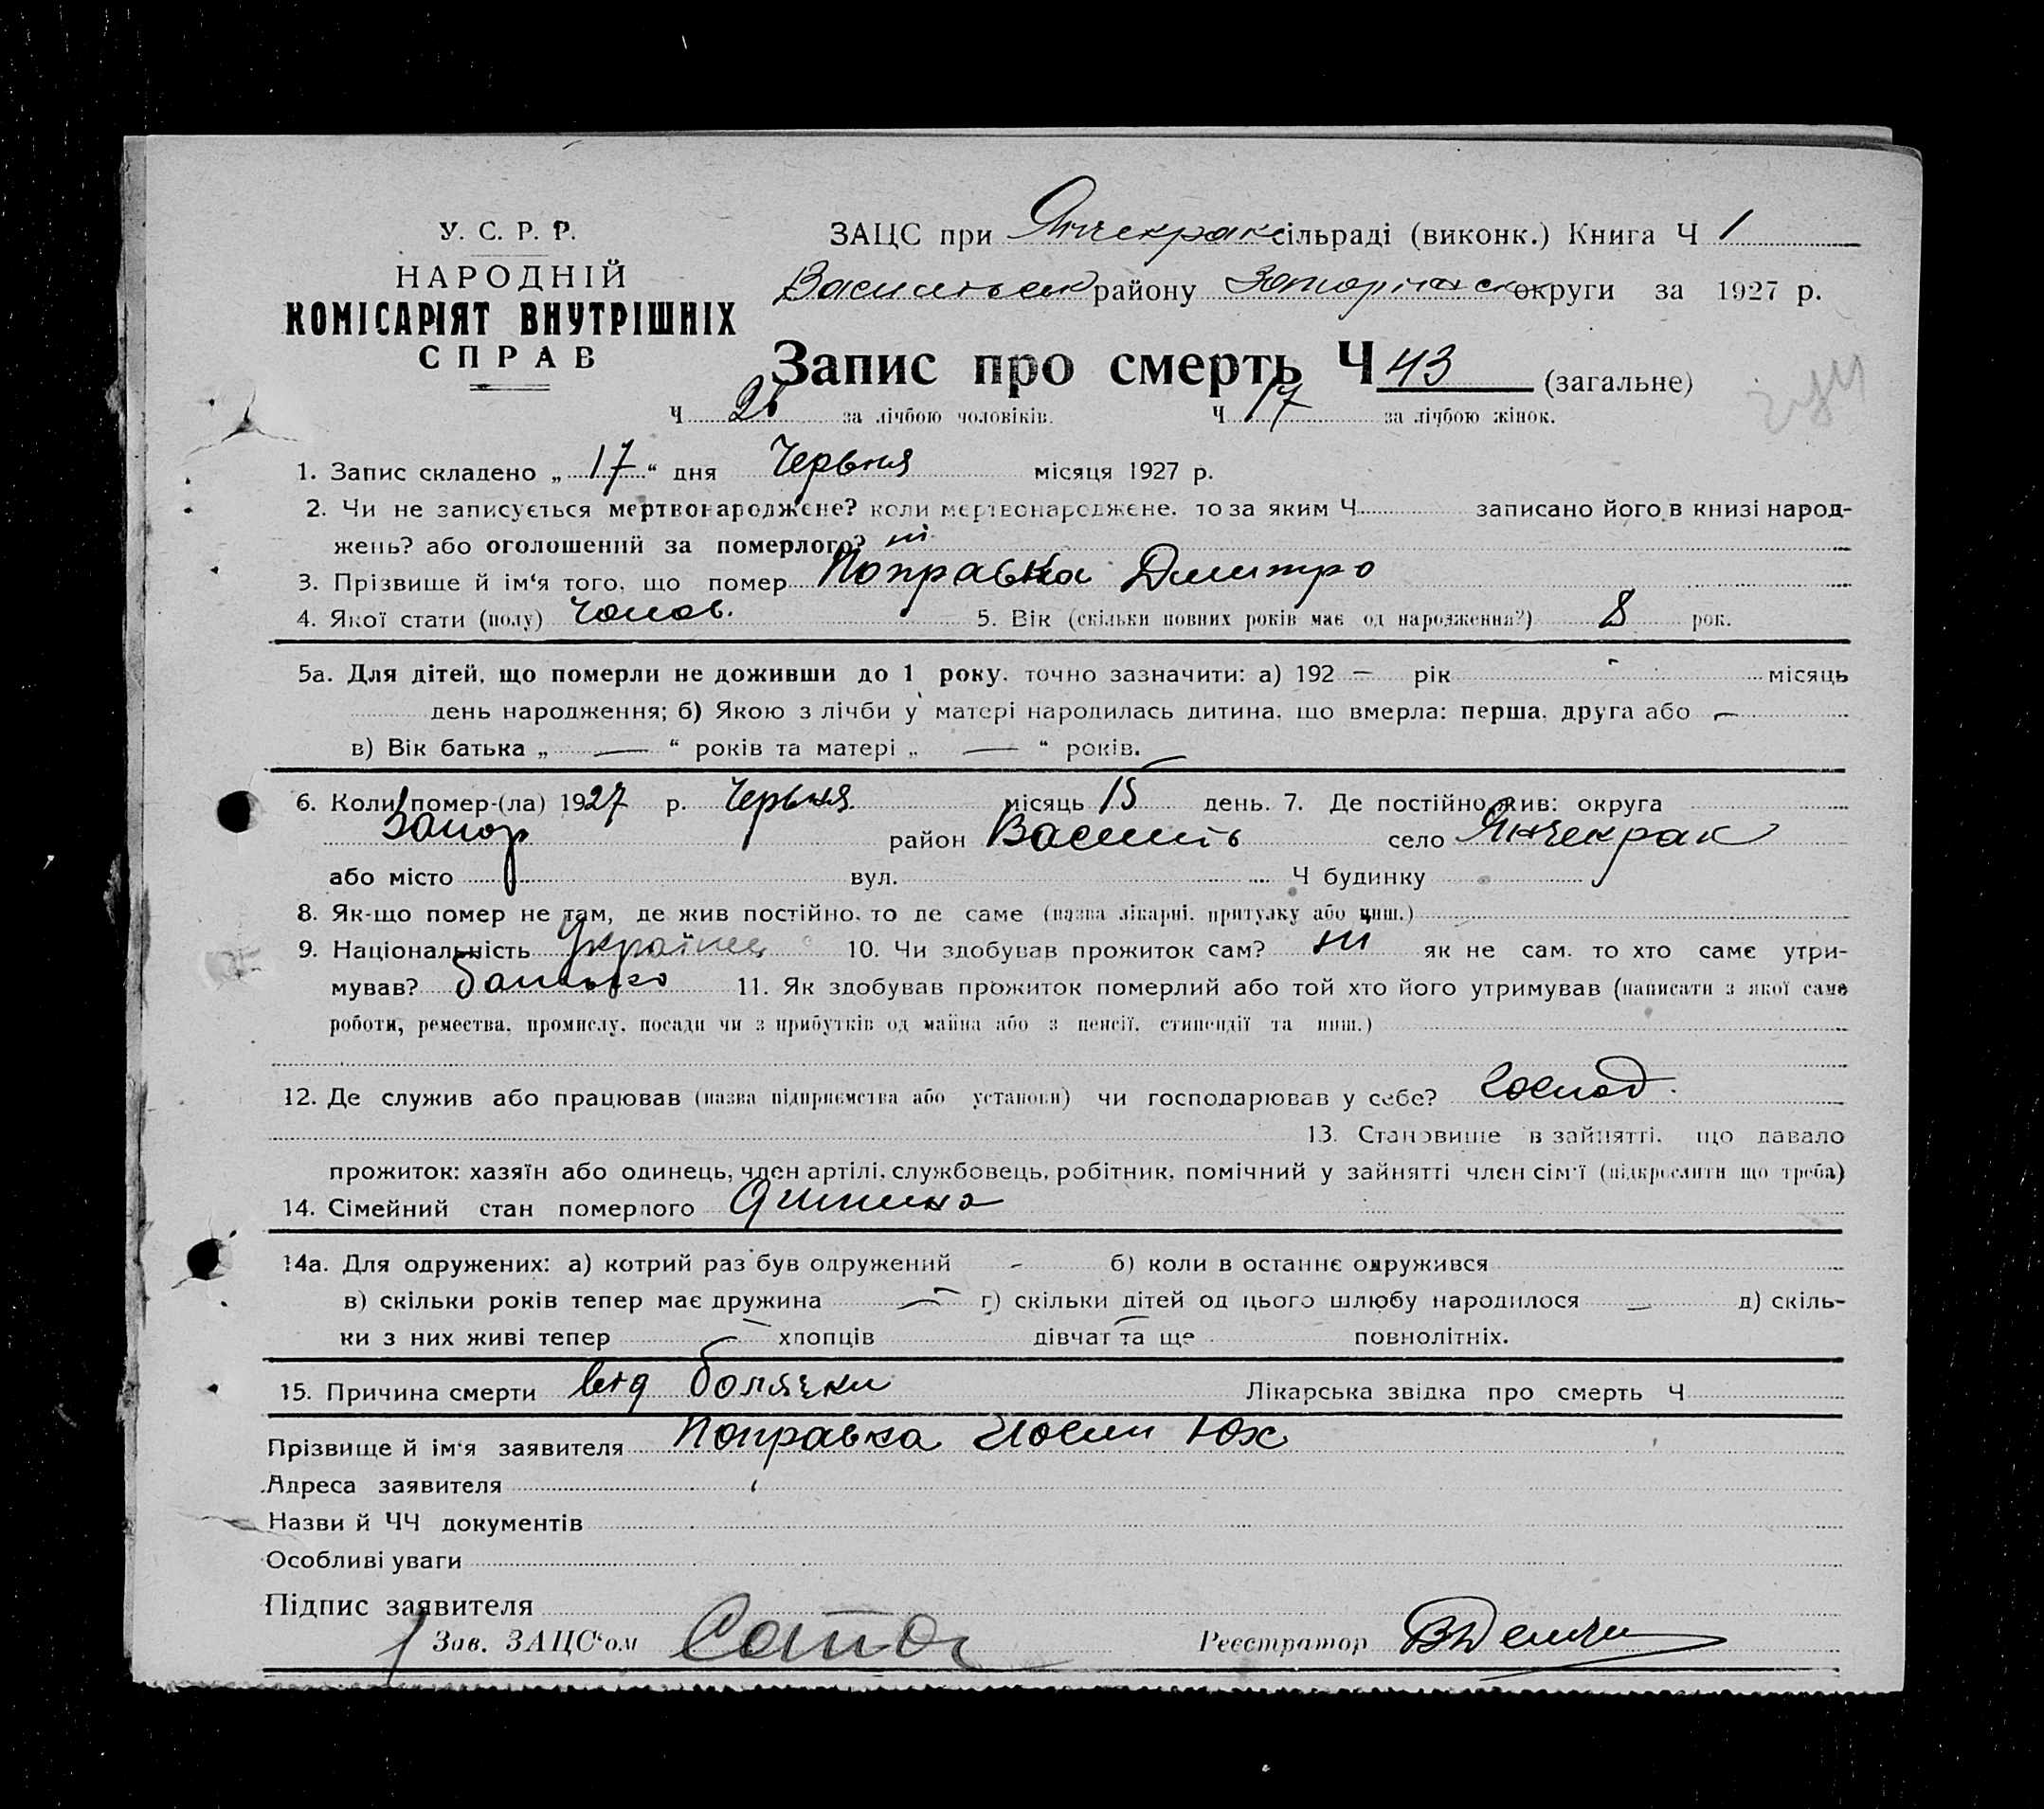 У. С. Р. Р.
НАРОДНІЙ
КОМІСАРІЯТ ВНУТРІШНІХ
СПРАВ
ЗАЦС при Янчекрак сільраді (виконк.) Книга Ч 1
Васильевк району Запоріжск округи за 1927 р.
Запис про смерть Ч 43 (загальне)
Ч 26 за лічбою чоловіків. Ч 17 за лічбою жінок.
1. Запис складено „ 17 “ дня Червня місяця 1927 р.
2. Чи не записується мертвонароджене? коли мертвонароджене, то за яким Ч записано його в книзі народ-
жень? або оголошений за померлого? ні
3. Прізвище й ім‘я того, що помер Поправка Дмитро
4. Якої стати (полу) Чолов. 5. Вік (скільки повних років має од народження?) 8 рок.
5а. Для дітей, що померли не доживши до 1 року, точно зазначити: а) 192 — рік - місяць
день народження; б) Якою з лічби у матері народилась дитина, що вмерла: перша, друга або —
в) Вік батька „ — “ років та матері „ — “ років.
6. Коли помер-(ла) 1927 р. Червня місяць 15 день. 7. Де постійно жив: округа
Запор район Василь село Янчекрак
або місто вул. Ч будинку
8. Як-що помер не там, де жив постійно, то де саме (назва лікарні, притулку або инш.)
9. Національність Українец 10. Чи здобував прожиток сам? ні як не сам, то хто саме утри-
мував? батько 11. Як здобував прожиток померлий або той хто його утримував (написати з якої саме
роботи, ремества, промислу, посади чи з прибутків од майна або з пенсії, стипендії та инш.)
12. Де служив або працював (назва підприємства або установи) чи господарював у себе? господ.
13. Становище в зайнятті, що давало
прожиток: хазяїн або одинець, член артілі, службовець, робітник, помічний у зайнятті член сім‘ї (підкреслити що треба)
14. Сімейний стан померлого Дитина
14а. Для одружених: а) котрий раз був одружений - б) коли в останнє одружився
в) скільки років тепер має дружина — г) скільки дітей од цього шлюбу народилося — д) скіль-
ки з них живі тепер — хлопців — дівчат та ще повнолітніх.
15. Причина смерти від болячки Лікарська звідка про смерть Ч
Прізвище й ім‘я заявителя Поправка Йосип Юх
Адреса заявителя
Назви й ЧЧ документів
Особливі уваги
Підпис заявителя
Зав. ЗАЦС‘ом
Реєстратор